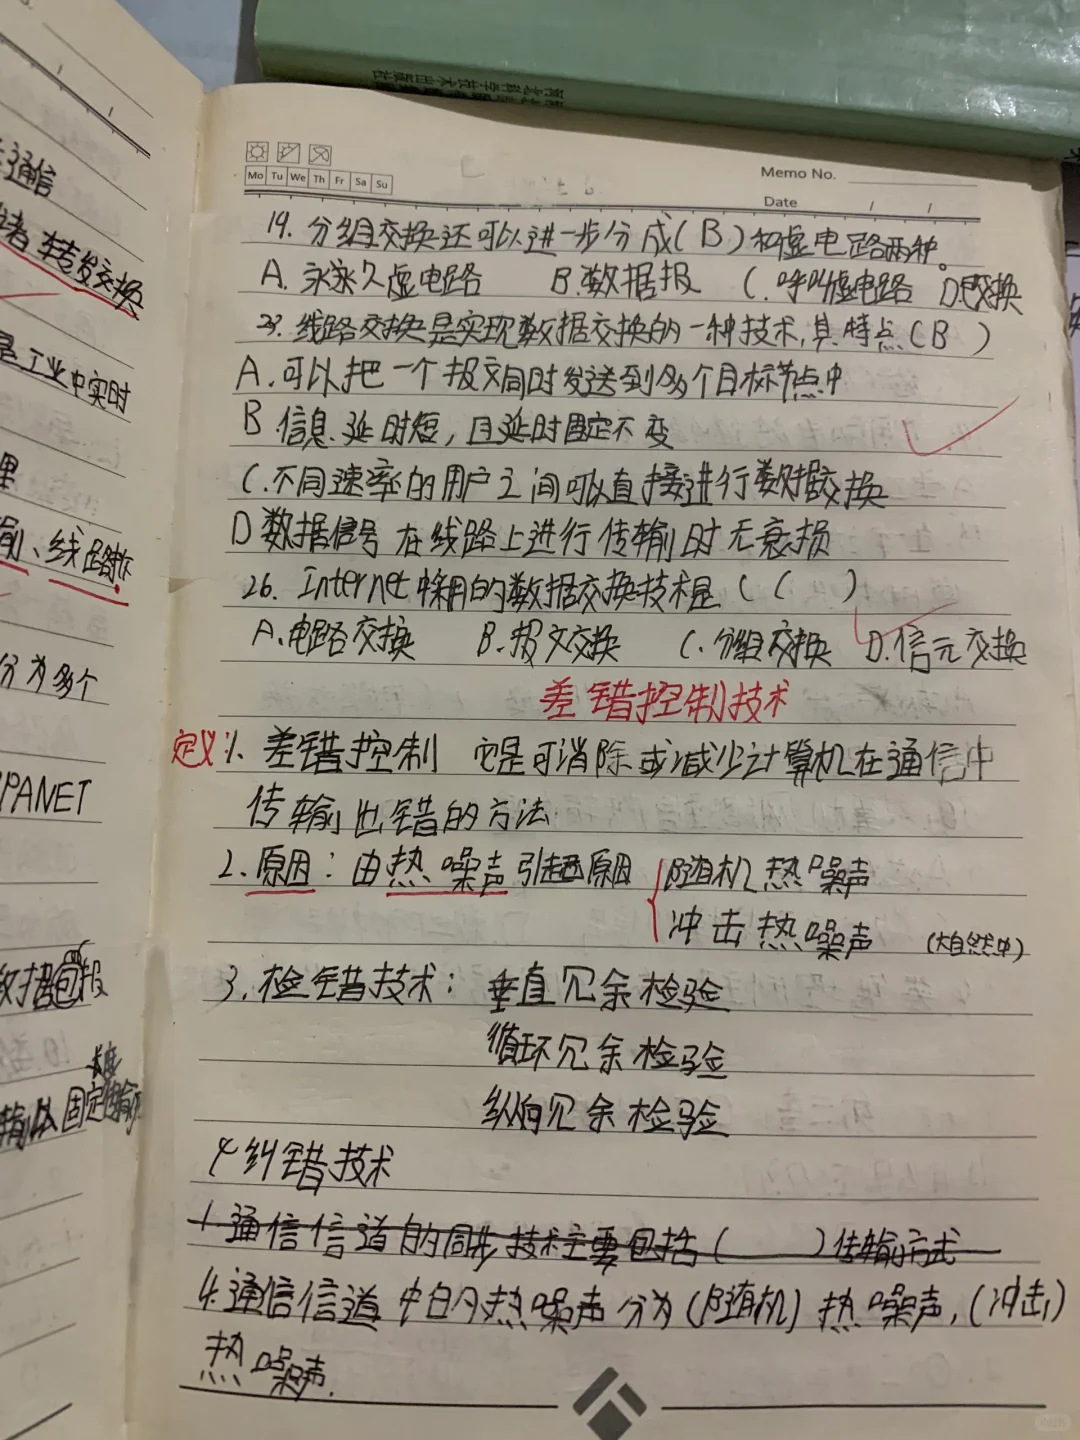 通信
转发交换
是工业中实时
线路
分为多个
PANET
报
长度
固定传输
Memo No.
Mo Tu We Th Fr Sa Su
Date / /
19. 分组交换还可以进一步分成(B)和虚电路两种。
A. 永永久虚电路 B.数据报 C.呼叫虚电路 D.交换
线路交换是实现数据交换的一种技术,其特点(B )
A.可以把一个报文同时发送到多个目标节点中
B 信息延时短,且延时固定不变
C.不同速率的用户之间可以直接进行数据交换
D 数据信号在线路上进行传输时无衰损
26. Internet中采用的数据交换技术是( C )
A.电路交换 B.报文交换 C.分组交换 D.信元交换
差错控制技术
定义:1. 差错控制 它是可消除或减少计算机在通信中
传输出错的方法
2.原因:由热噪声引起原因 随机热噪声
冲击热噪声 (大自然中)
3.检错技术: 垂直冗余检验
循环冗余检验
纵向冗余检验
4 纠错技术
1.通信信道的同步技术主要包括( )传输方式
4.通信信道中的热噪声分为(随机)热噪声,(冲击)
热噪声.